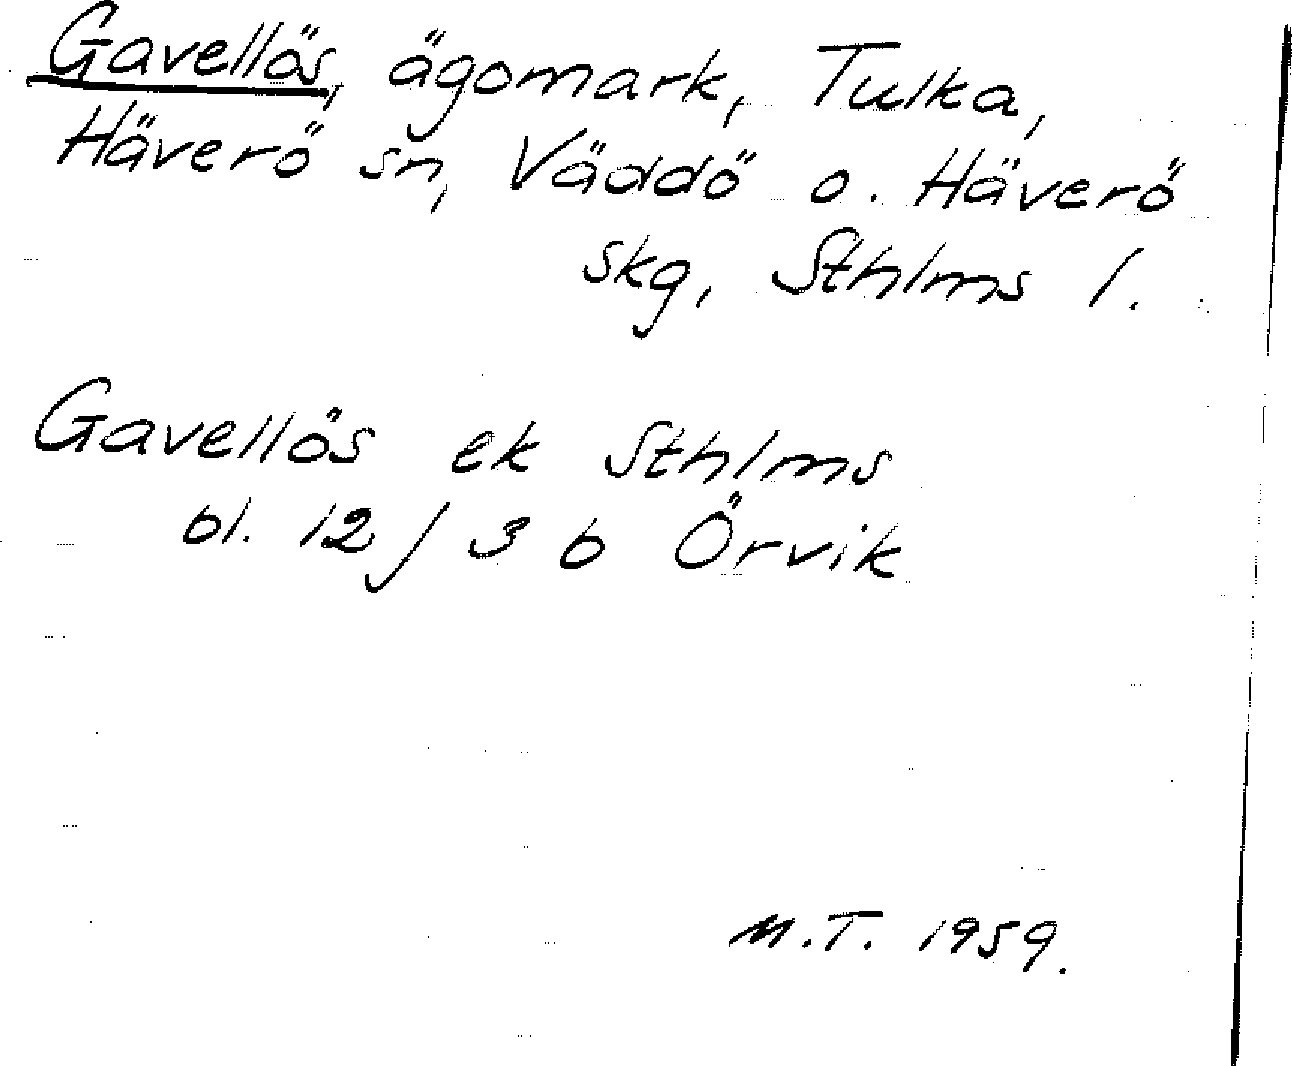 Gavellös, ägomark, Tulka,
Häverö sn, Väddö o. Häverö
skg, Sthlms l.
Gavellös ek Sthlms
bl. 12/3 b Örvik
M.T. 1959.